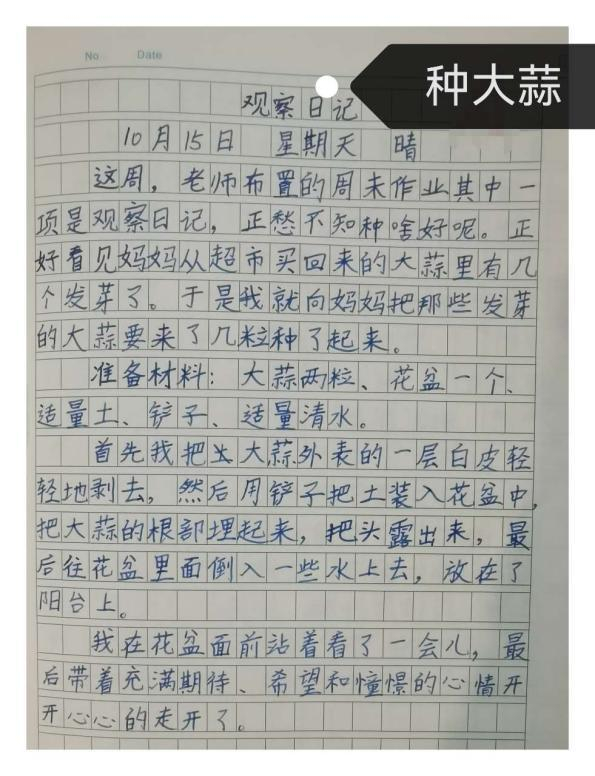 No Date
种大蒜
观察日记
10月15日 星期天 晴
这周，老师布置的周末作业其中一
项是观察日记，正愁不知种啥好呢。正
好看见妈妈从超市买回来的大蒜里有几
个发芽了。于是我就向妈妈把那些发芽
的大蒜要来了几粒种了起来。
准备材料：大蒜两粒、花盆一个、
适量土、铲子、适量清水。
首先我把大蒜外表的一层白皮轻
轻地剥去，然后用铲子把土装入花盆中，
把大蒜的根部埋起来，把头露出来，最
后往花盆里面倒入一些水上去，放在了
阳台上。
我在花盆面前站着看了一会儿，最
后带着充满期待、希望和憧憬的心情开
开心心的走开了。